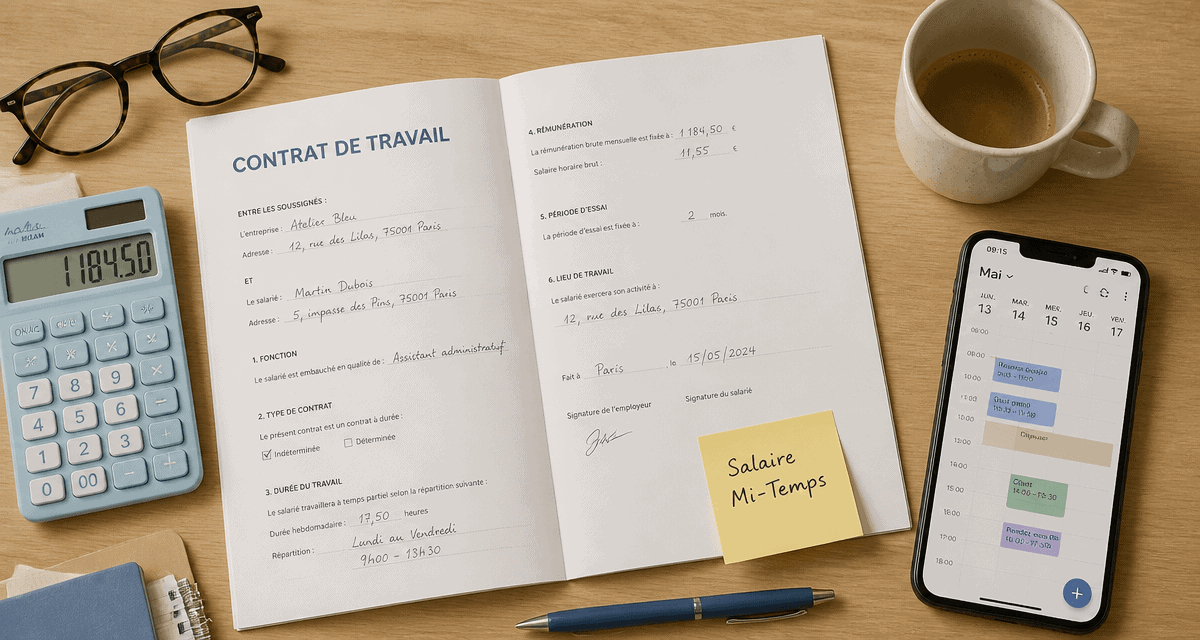 CONTRAT DE TRAVAIL
ENTRE LES SOUSSIGNÉS :
L'entreprise : Atelier Bleu
Adresse : 12, rue des Lilas, 75001 Paris
ET
Le salarié : Martin Dubois
Adresse : 5, impasse des Pins, 75001 Paris
1. FONCTION
Le salarié est embauché en qualité de : Assistant administratif
2. TYPE DE CONTRAT
Le présent contrat est un contrat à durée :
Indéterminée Déterminée
3. DURÉE DU TRAVAIL
Le salarié travaillera à temps partiel selon la répartition suivante :
Durée hebdomadaire : 17,50 heures
Répartition : Lundi au Vendredi
9h00 - 13h30
4. RÉMUNÉRATION
La rémunération brute mensuelle est fixée à : 1 184,50 €
Salaire horaire brut : 11,55 €
5. PÉRIODE D'ESSAI
La période d'essai est fixée à : 2 mois.
6. LIEU DE TRAVAIL
Le salarié exercera son activité à :
12, rue des Lilas, 75001 Paris
Fait à Paris , le 15/05/2024
Signature de l'employeur Signature du salarié
Salaire
Mi-Temps
1184.50
7 8 9
4 5 6
1 2 3
0 00
09:15
Mai
JUN. MAR. MES. JEU. VEN.
13 14 15 16 17
08:00
10:00
15:00
17:00
18:00